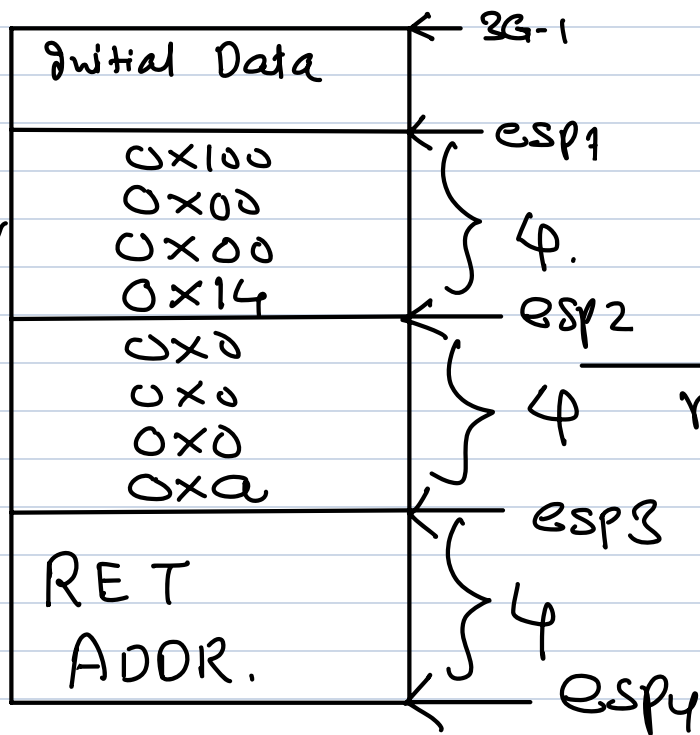 3G-1
Initial Data
esp1
0x100
0x00
0x00
0x14
4.
esp2
0x0
0x0
0x0
0xa
4
esp3
RET
ADDR.
4
esp4